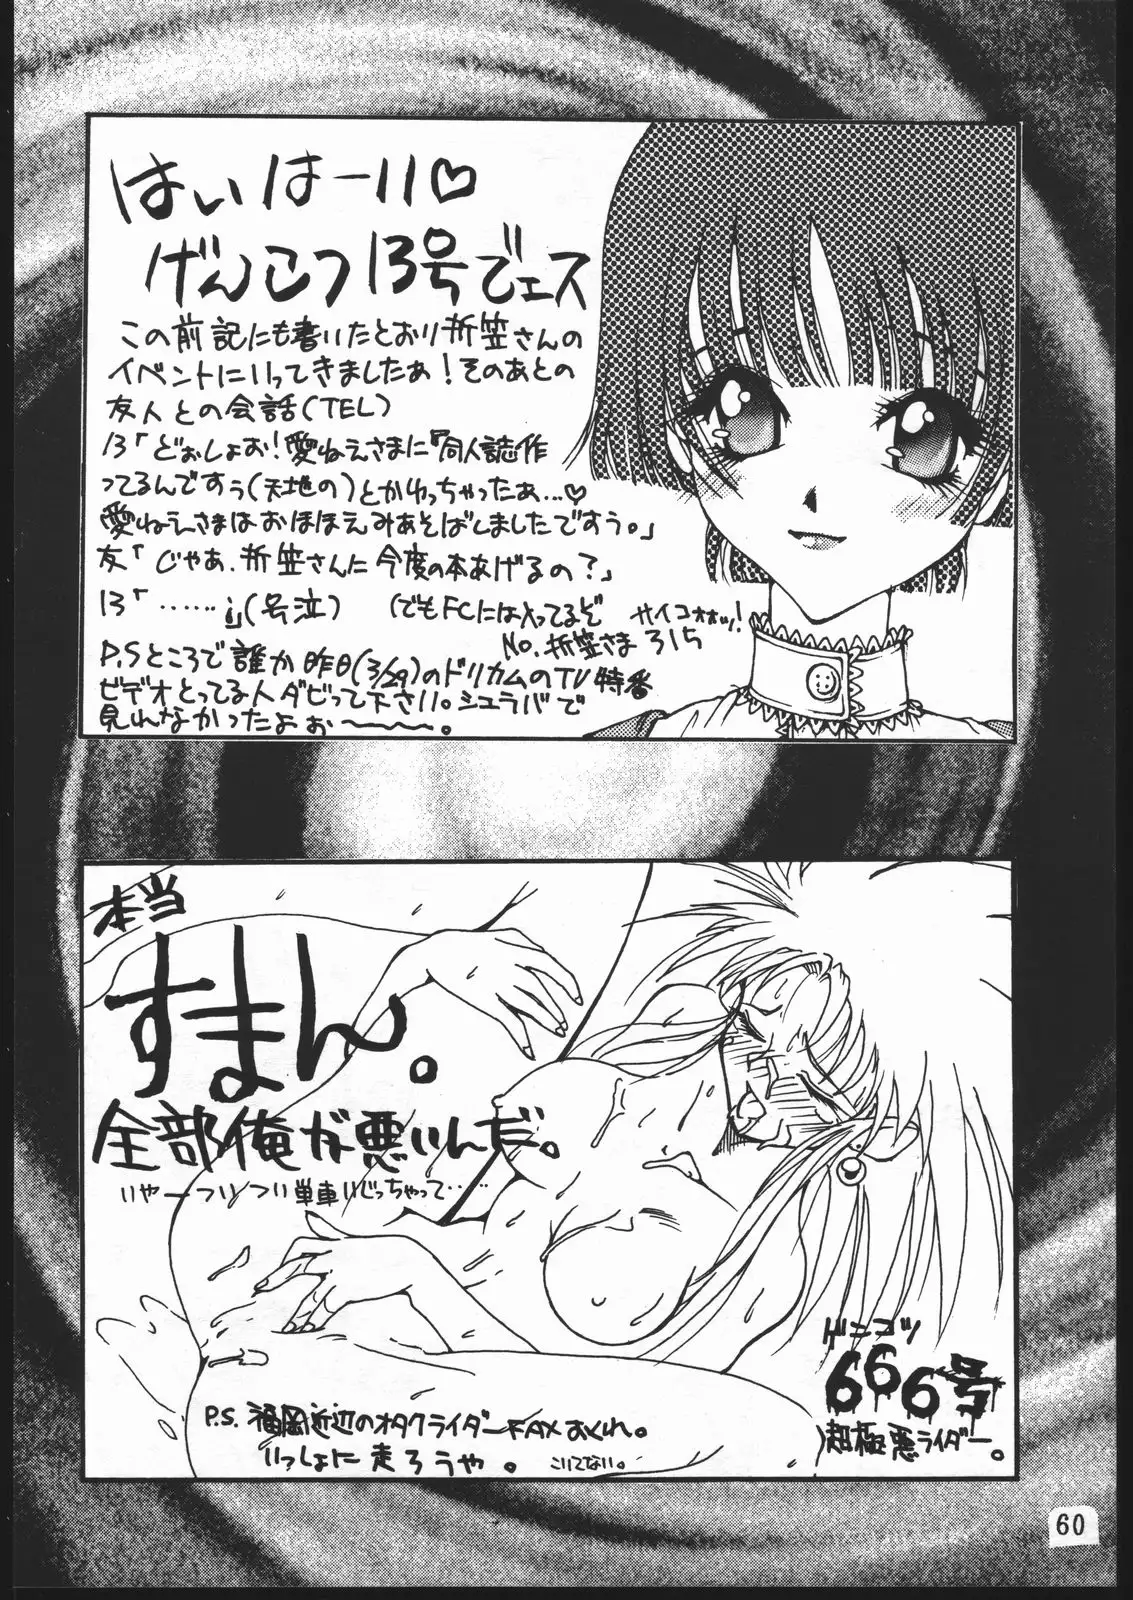 はぃはーい♡
げんこつ13号でェス
この前記にも書いたとおり折笠さんの
イベントにいってきましたぁ!そのあとの
友人との会話(TEL)
13「どぉしょぉ!愛ねえさまに『同人誌作
ってるんですぅ(天地の)とかゆっちゃったぁ…♡
愛ねえさまはおほほえみあそばしましたですぅ。」
友「じゃあ、折笠さんに今度の本あげるの?」
13「……」(号泣)
(でもFCには入ってるぞ
サイコオォッ!
No.折笠さま315
P.Sところで誰か昨日(3/29)のドリカムのTV特番
ビデオとってる人ダビって下さい。シュラバで
見れなかったよぉ〜〜。
本当
すまん。
全部俺が悪いんだ。
いやーついつい単車いじっちゃって……
ゲンコツ
666号
超極悪ライダー。
P.S.福岡近辺のオタクライダーFAXおくれ。
いっしょに走ろうや。
こいてない。
60